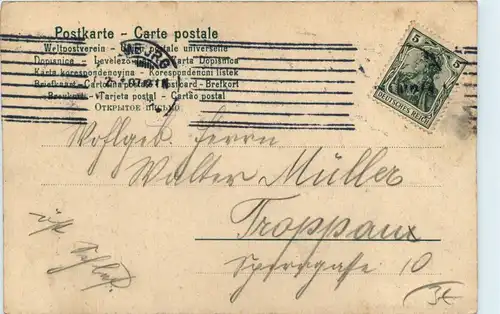 Postkarte - Carte postale
Weltpostverein - Union postale universelle
Dopisnica - Levelező Carta Dopisnica
Karta korespondencyjna - Korespondenční lístek
Briefkart - Cartolina postale - Postcard - Brefkort
Tarjeta postal - Cartão postal
ОТКРЫТОЕ ПИСЬМО
5 5
DEUTSCHES REICH
Wohlgeb. Herrn
Walter Müller
Troppau
Sperrgasse 10